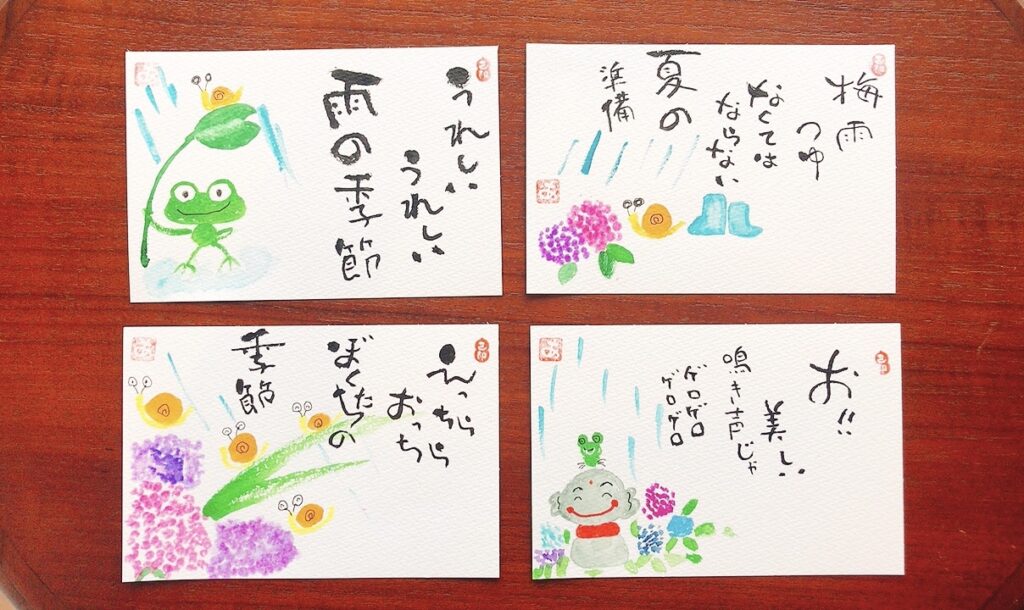 うれしい
うれしい
雨の季節
梅雨
つゆ
なくては
ならない
夏の
準備
えっちら
おっちら
ぼくたちの
季節
お!!
美しい
鳴き声じゃ
ゲロゲロ
ゲロゲロ